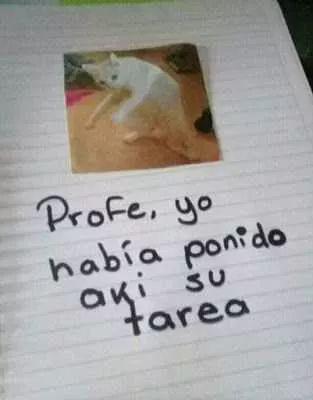 Profe, yo
había ponido
aki su
tarea